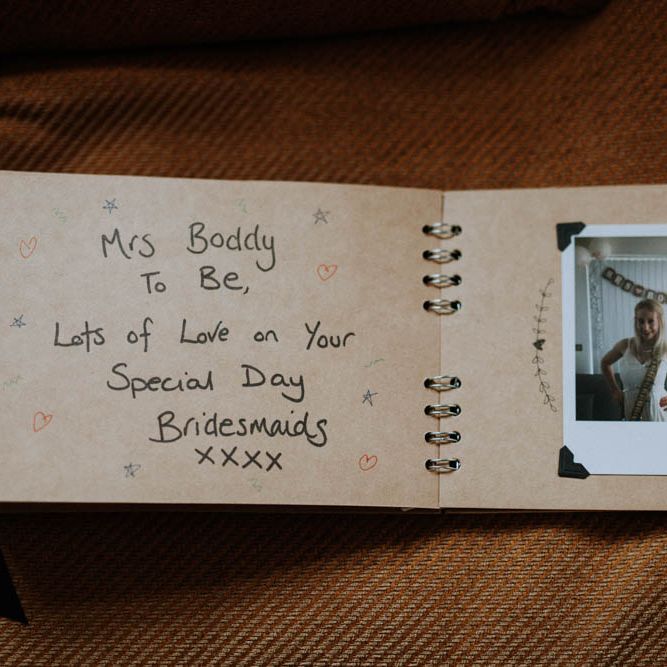 Mrs Boddy
To Be,
Lots of Love on Your
Special Day
Bridesmaids
xxxx